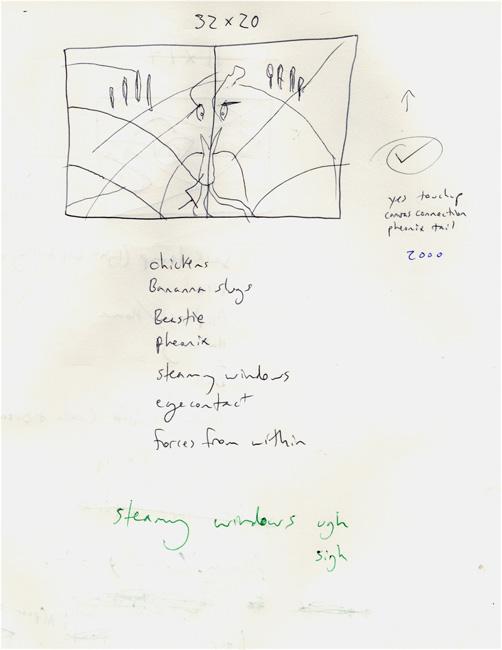 32 x 20
yes touchup
canvas connection
pheonix tail
2000
chickens
Bananna slugs
Beastie
pheonix
steamy windows
eyecontact
forces from within
steamy windows ugh
sigh